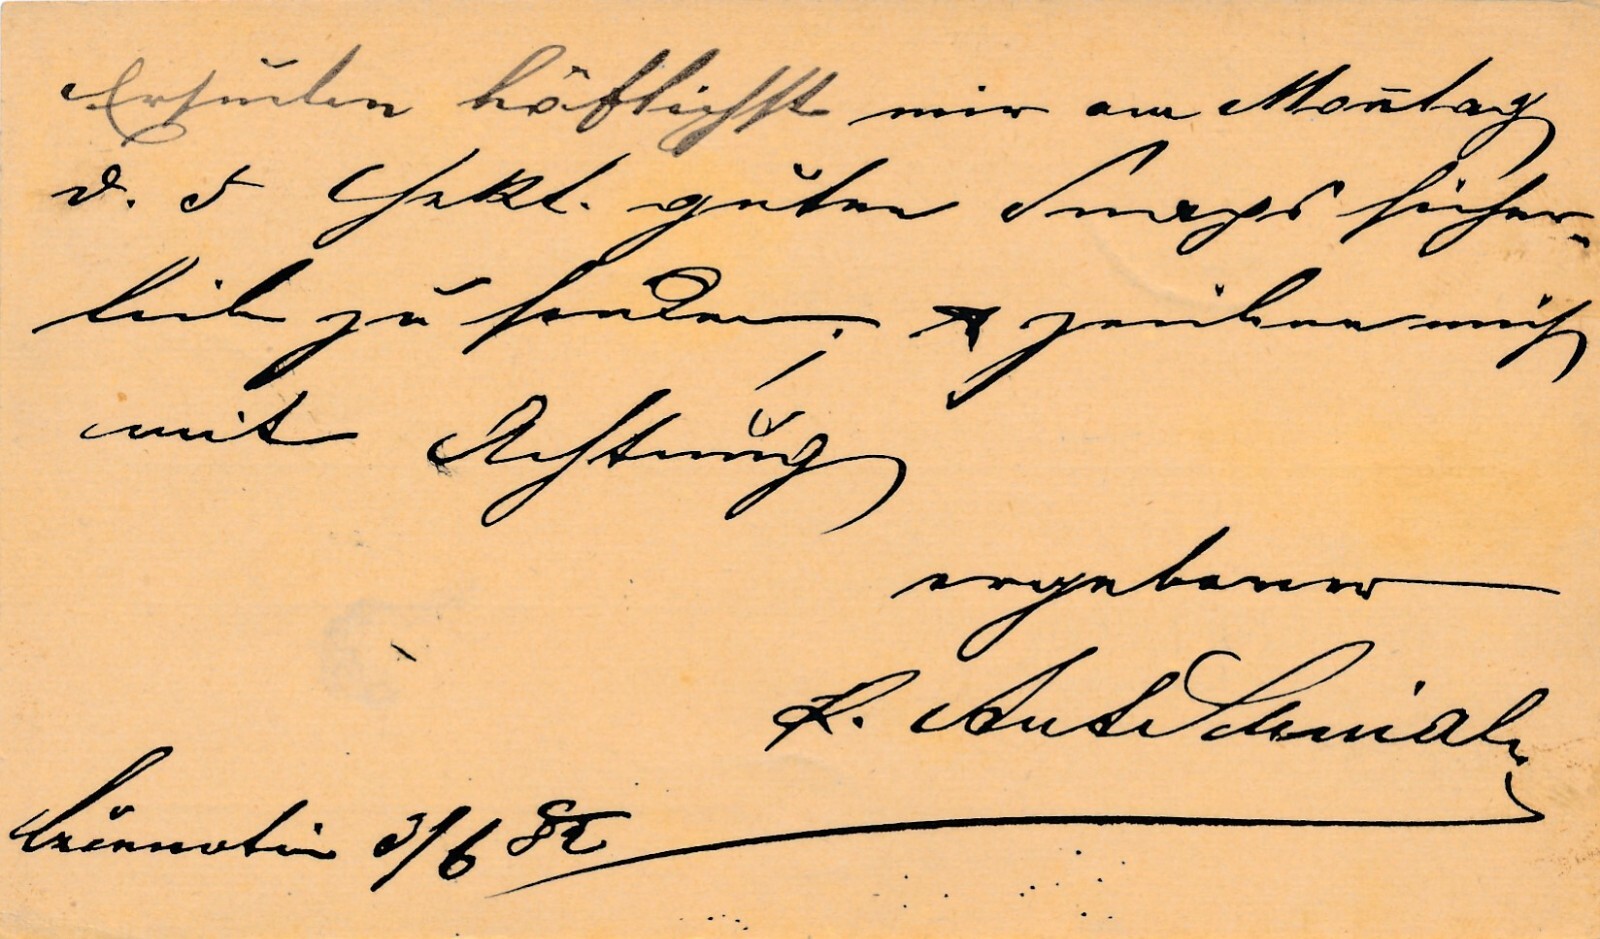 Ersuchen höflichst mir am Montag
d. 5 Hekt. guten Snaps sicher-
lich zu senden, zeichne mich
mit Achtung
ergebener
3/6 85